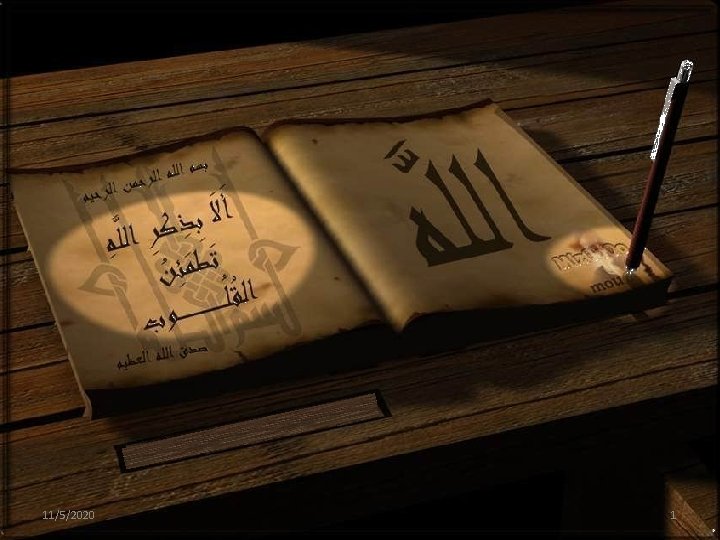 بسم الله الرحمن الرحيم
أَلَا بِذِكْرِ اللَّهِ
تَطْمَئِنُّ
القُلُوب
صدق الله العظيم
اللّه
11/5/2020
1